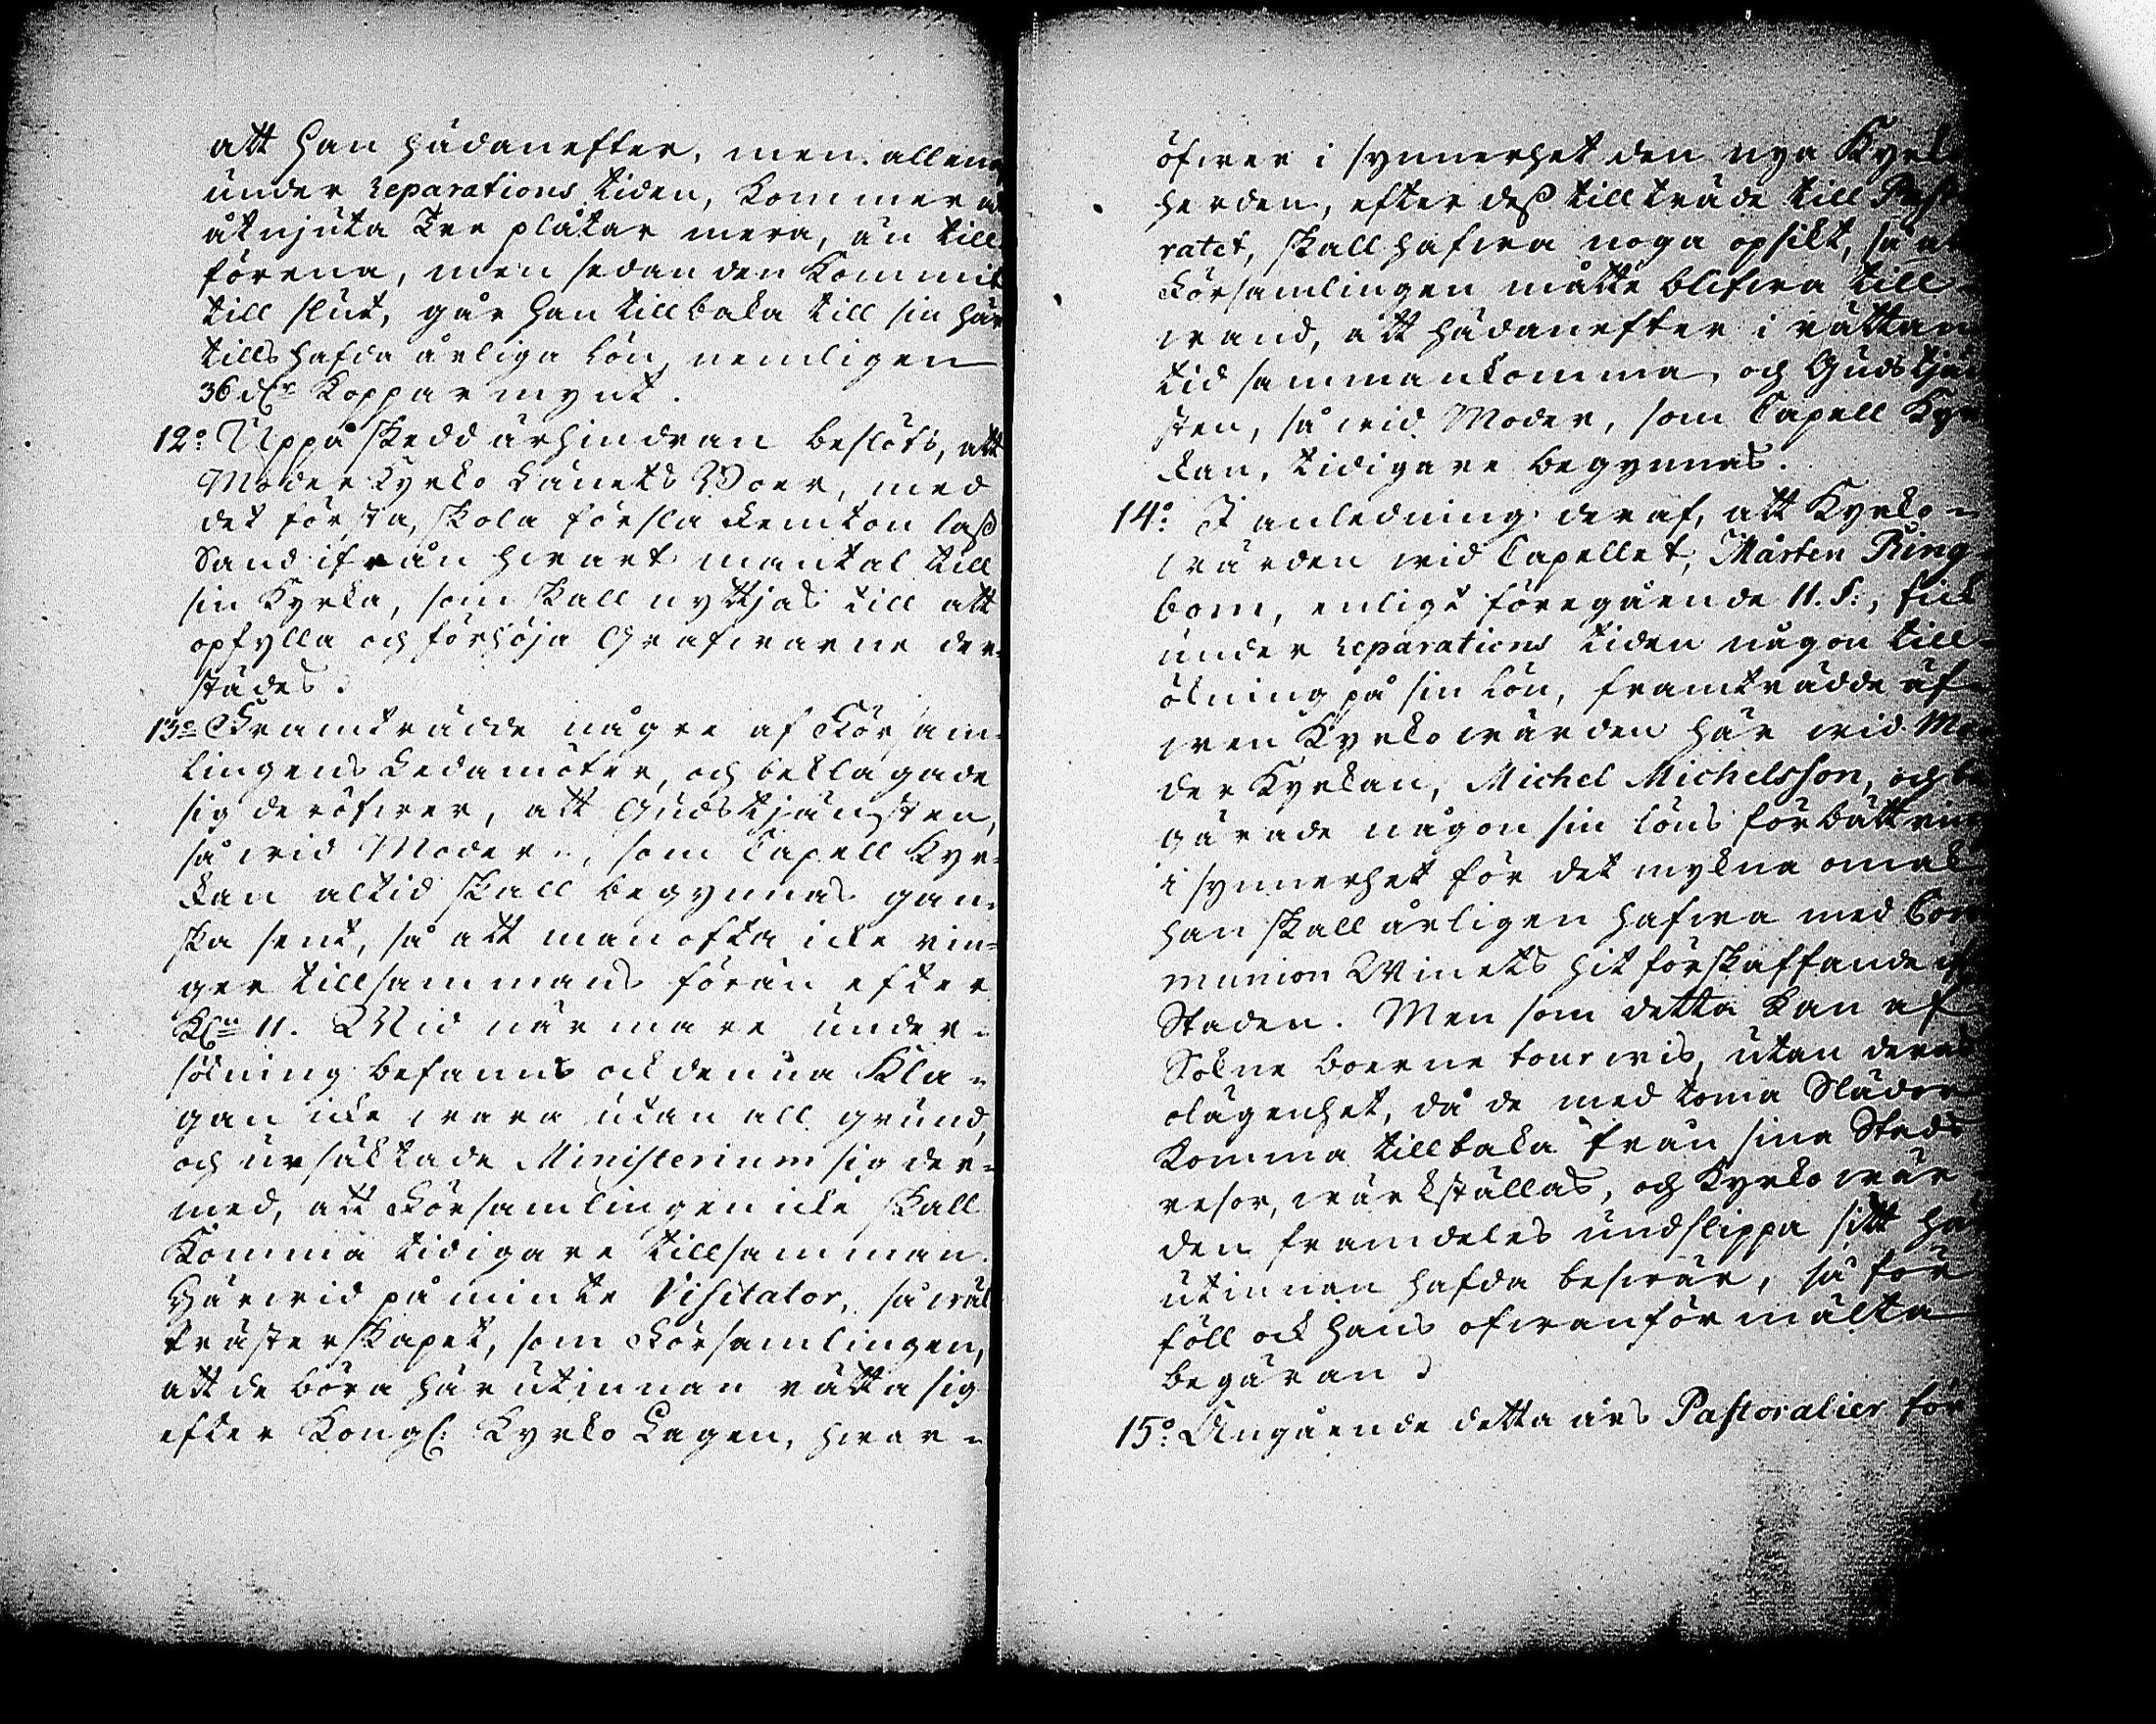 att han hädanefter, men allena
under reparations tiden, kommer at
åtnjuta Tre plåtar mera, än till
förena, men sedan den kommit
till slut, går han tillbaka till sin här
tills hafda årliga lön, nemligen
36 dlr Kopparmynt.
12:o Uppå skedd ärhindran beslöts, att
Moder Kyrko Länets Boer, med
det första, skola försla femton lass
Sand ifrån hwart mantal till
sin Kyrka, som skall nyttjas till att
opfylla och förhöja Grafwarne der-
städes.
13:o Framträdde någre af Försam-
lingens Ledamöter, och beklagade
sig deröfwer, att Gudstjänsten,
så wid Moder-, som Capell Kyr-
kan altid skall begynnas gan-
ska sent, så att man ofta icke rin-
ger tillsammans förän efter
Kl:n 11. Wid närmare under-
sökning befanns ock denna Kla-
gan icke wara utan all grund,
och ursäktade Ministerium sig der-
med, att Församlingen icke skall
komma tidigare tillsamman.
Härwid påminte Visitator, så wäl
Prästerskapet, som Församlingen,
att de böra härutinnan rätta sig
efter Kongl: Kyrko Lagen, hwar-
öfwer i synnerhet den nya Kyrko
herden, efter dess tillträde till Pasto
ratet, skall hafwa noga opsikt, så at
Församlingen måtte blifwa till-
wand, att hädanefter i rättan
tid sammankomma, och Gudstjän
sten, så wid Moder, som Capell Kyr
kan, tidigare begynnas.
14:o I anledning deraf, att Kyrko-
wärden wid Capellet, Mårten Ring-
bom, enligt föregående 11. §:, fick
under reparations tiden någon till-
ökning på sin lön, framträdde äf-
wen Kyrkowärden här wid Mo
der Kyrkan, Michel Michelsson, och be
gärade någon sin löns förbättring
i synnerhet för det mykna omak
han skall årligen hafwa med Com
munion Winets hit förskaffande if
Staden. Men som detta kan af
Sokne boerne tourwis, utan deras
olägenhet, då de med toma Slädor
komma tillbaka från sina Stads
resor, wärkställas, och Kyrkowär-
den framdeles undslippa sitt här
utinnan hafda beswär, så för
föll ock hans ofwanför mälta
begäran.
15:o Angående detta års Pastoralier för